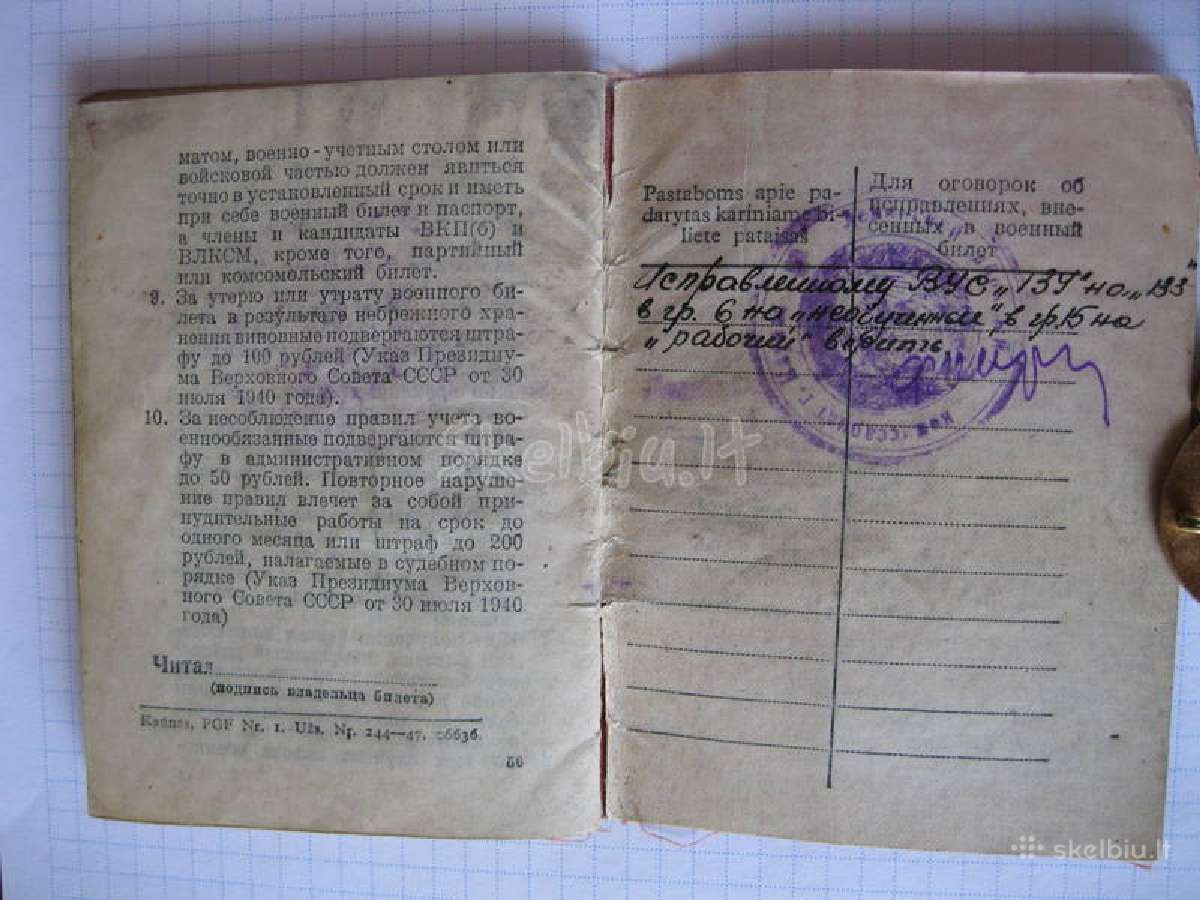 матом, военно-учетным столом или
войсковой частью должен явиться
точно в установленный срок и иметь
при себе военный билет и паспорт,
а члены и кандидаты ВКП(б) и
ВЛКСМ, кроме того, партийный
или комсомольский билет.
9. За утерю или утрату военного би-
лета в результате небрежного хра-
нения виновные подвергаются штра-
фу до 100 рублей (Указ Президиу-
ма Верховного Совета СССР от 30
июля 1940 года).
10. За несоблюдение правил учета во-
еннообязанные подвергаются штра-
фу в административном порядке
до 50 рублей. Повторное наруше-
ние правил влечет за собой при-
нудительные работы на срок до
одного месяца или штраф до 200
рублей, налагаемые в судебном по-
рядке (Указ Президиума Верхов-
ного Совета СССР от 30 июля 1940
года)
Читал
(подпись владельца билета)
Kaunas, PGF Nr. 1. Užs. Nr. 244—47.
Pastaboms apie pa-
darytas kariniame bi-
liete pataisas
Для оговорок об
исправлениях, вне-
сенных в военный
билет
Исправленному ВУС „137" на „133"
в гр. 6 на в гр. 15 на
„рабочий"
skelbiu.lt
skelbiu.lt